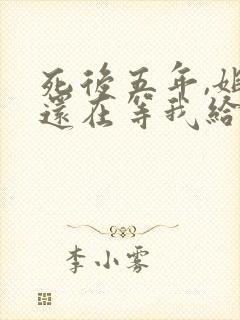 死後五年,姐
還在等我給
李小霧